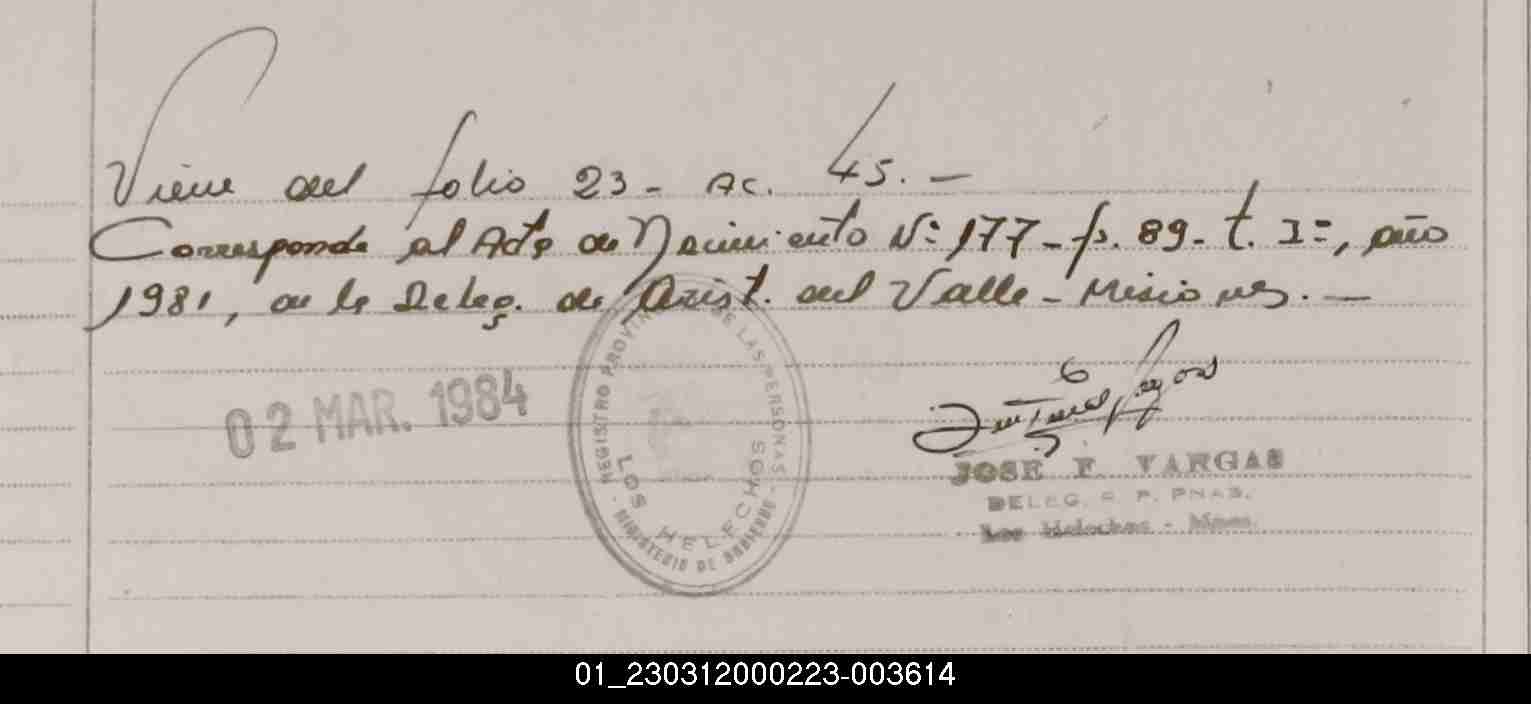 Viene del folio 23- Ac. 45.-
Corresponde al Acta de Nacimiento Nº 177- fº. 89- t. Iº, año
1981, de la Deleg. de Arist. del Valle - Misiones.-
02 MAR. 1984
REGISTRO PROVINCIAL DE LAS PERSONAS
LOS HELECHOS
- MINISTERIO DE GOBIERNO -
JOSE F. VARGAS
DELEG. R. P. PNAS.
Los Helechos - Mnes.
01_230312000223-003614